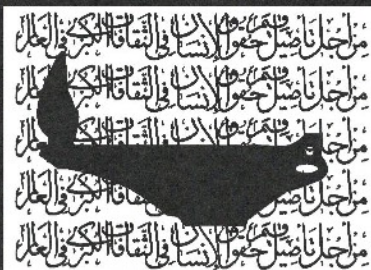 من أجل تأصيل حقوق الإنسان في الثقافات الكبرى في العالم
من أجل تأصيل حقوق الإنسان في الثقافات الكبرى في العالم
من أجل تأصيل حقوق الإنسان في الثقافات الكبرى في العالم
من أجل تأصيل الكبرى في العالم
من أجل تأصيل حقوق الإنسان في الثقافات الكبرى في العالم